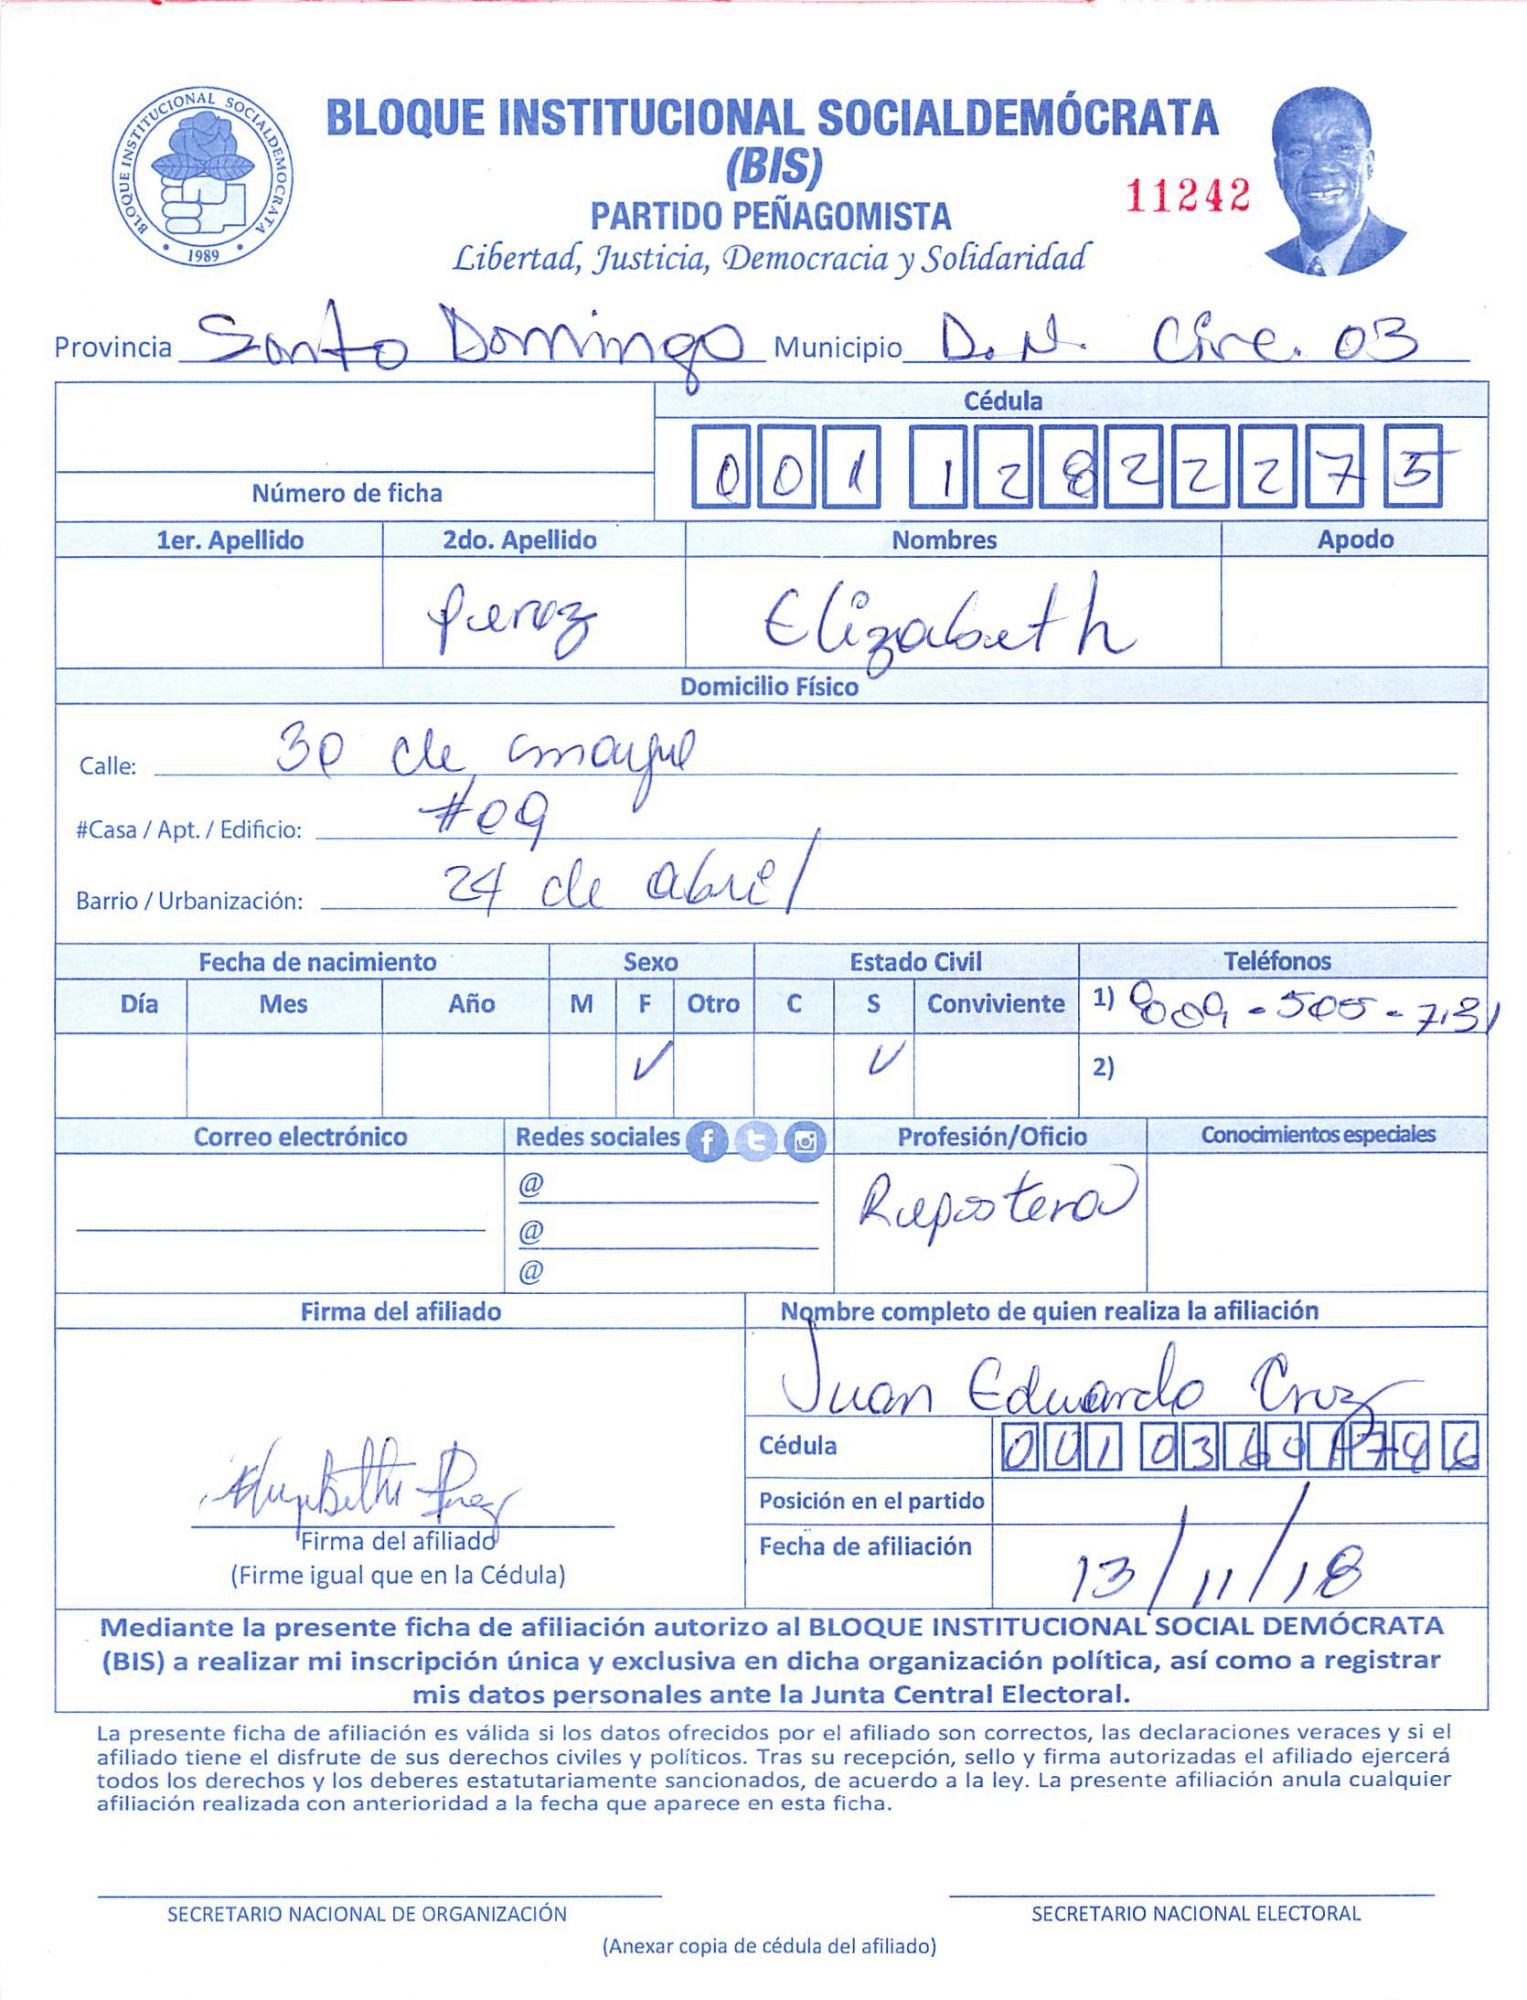 BLOQUE INSTITUCIONAL SOCIALDEMÓCRATA
(BIS)
PARTIDO PEÑAGOMISTA
11242
Libertad, Justicia, Democracia y Solidaridad
BLOQUE INSTITUCIONAL SOCIALDEMOCRATA
1989
Provincia Santo Domingo Municipio D.N. Circ. 03
Cédula
001 1282227 5
Número de ficha
1er. Apellido 2do. Apellido Nombres Apodo
Perez Elizabeth
Domicilio Físico
Calle: 30 de
#Casa / Apt. / Edificio: #09
Barrio / Urbanización: 24 de abril
Fecha de nacimiento Sexo Estado Civil Teléfonos
Día Mes Año M F Otro C S Conviviente 1) 809-505-7131
2)
Correo electrónico Redes sociales Profesión/Oficio Conocimientos especiales
@ Repostera
@
@
Firma del afiliado Nombre completo de quien realiza la afiliación
Juan Eduardo Cruz
Cédula 001
Posición en el partido
Firma del afiliado
Fecha de afiliación 13/11/18
(Firme igual que en la Cédula)
Mediante la presente ficha de afiliación autorizo al BLOQUE INSTITUCIONAL SOCIAL DEMÓCRATA
(BIS) a realizar mi inscripción única y exclusiva en dicha organización política, así como a registrar
mis datos personales ante la Junta Central Electoral.
La presente ficha de afiliación es válida si los datos ofrecidos por el afiliado son correctos, las declaraciones veraces y si el
afiliado tiene el disfrute de sus derechos civiles y políticos. Tras su recepción, sello y firma autorizadas el afiliado ejercerá
todos los derechos y los deberes estatutariamente sancionados, de acuerdo a la ley. La presente afiliación anula cualquier
afiliación realizada con anterioridad a la fecha que aparece en esta ficha.
SECRETARIO NACIONAL DE ORGANIZACIÓN SECRETARIO NACIONAL ELECTORAL
(Anexar copia de cédula del afiliado)